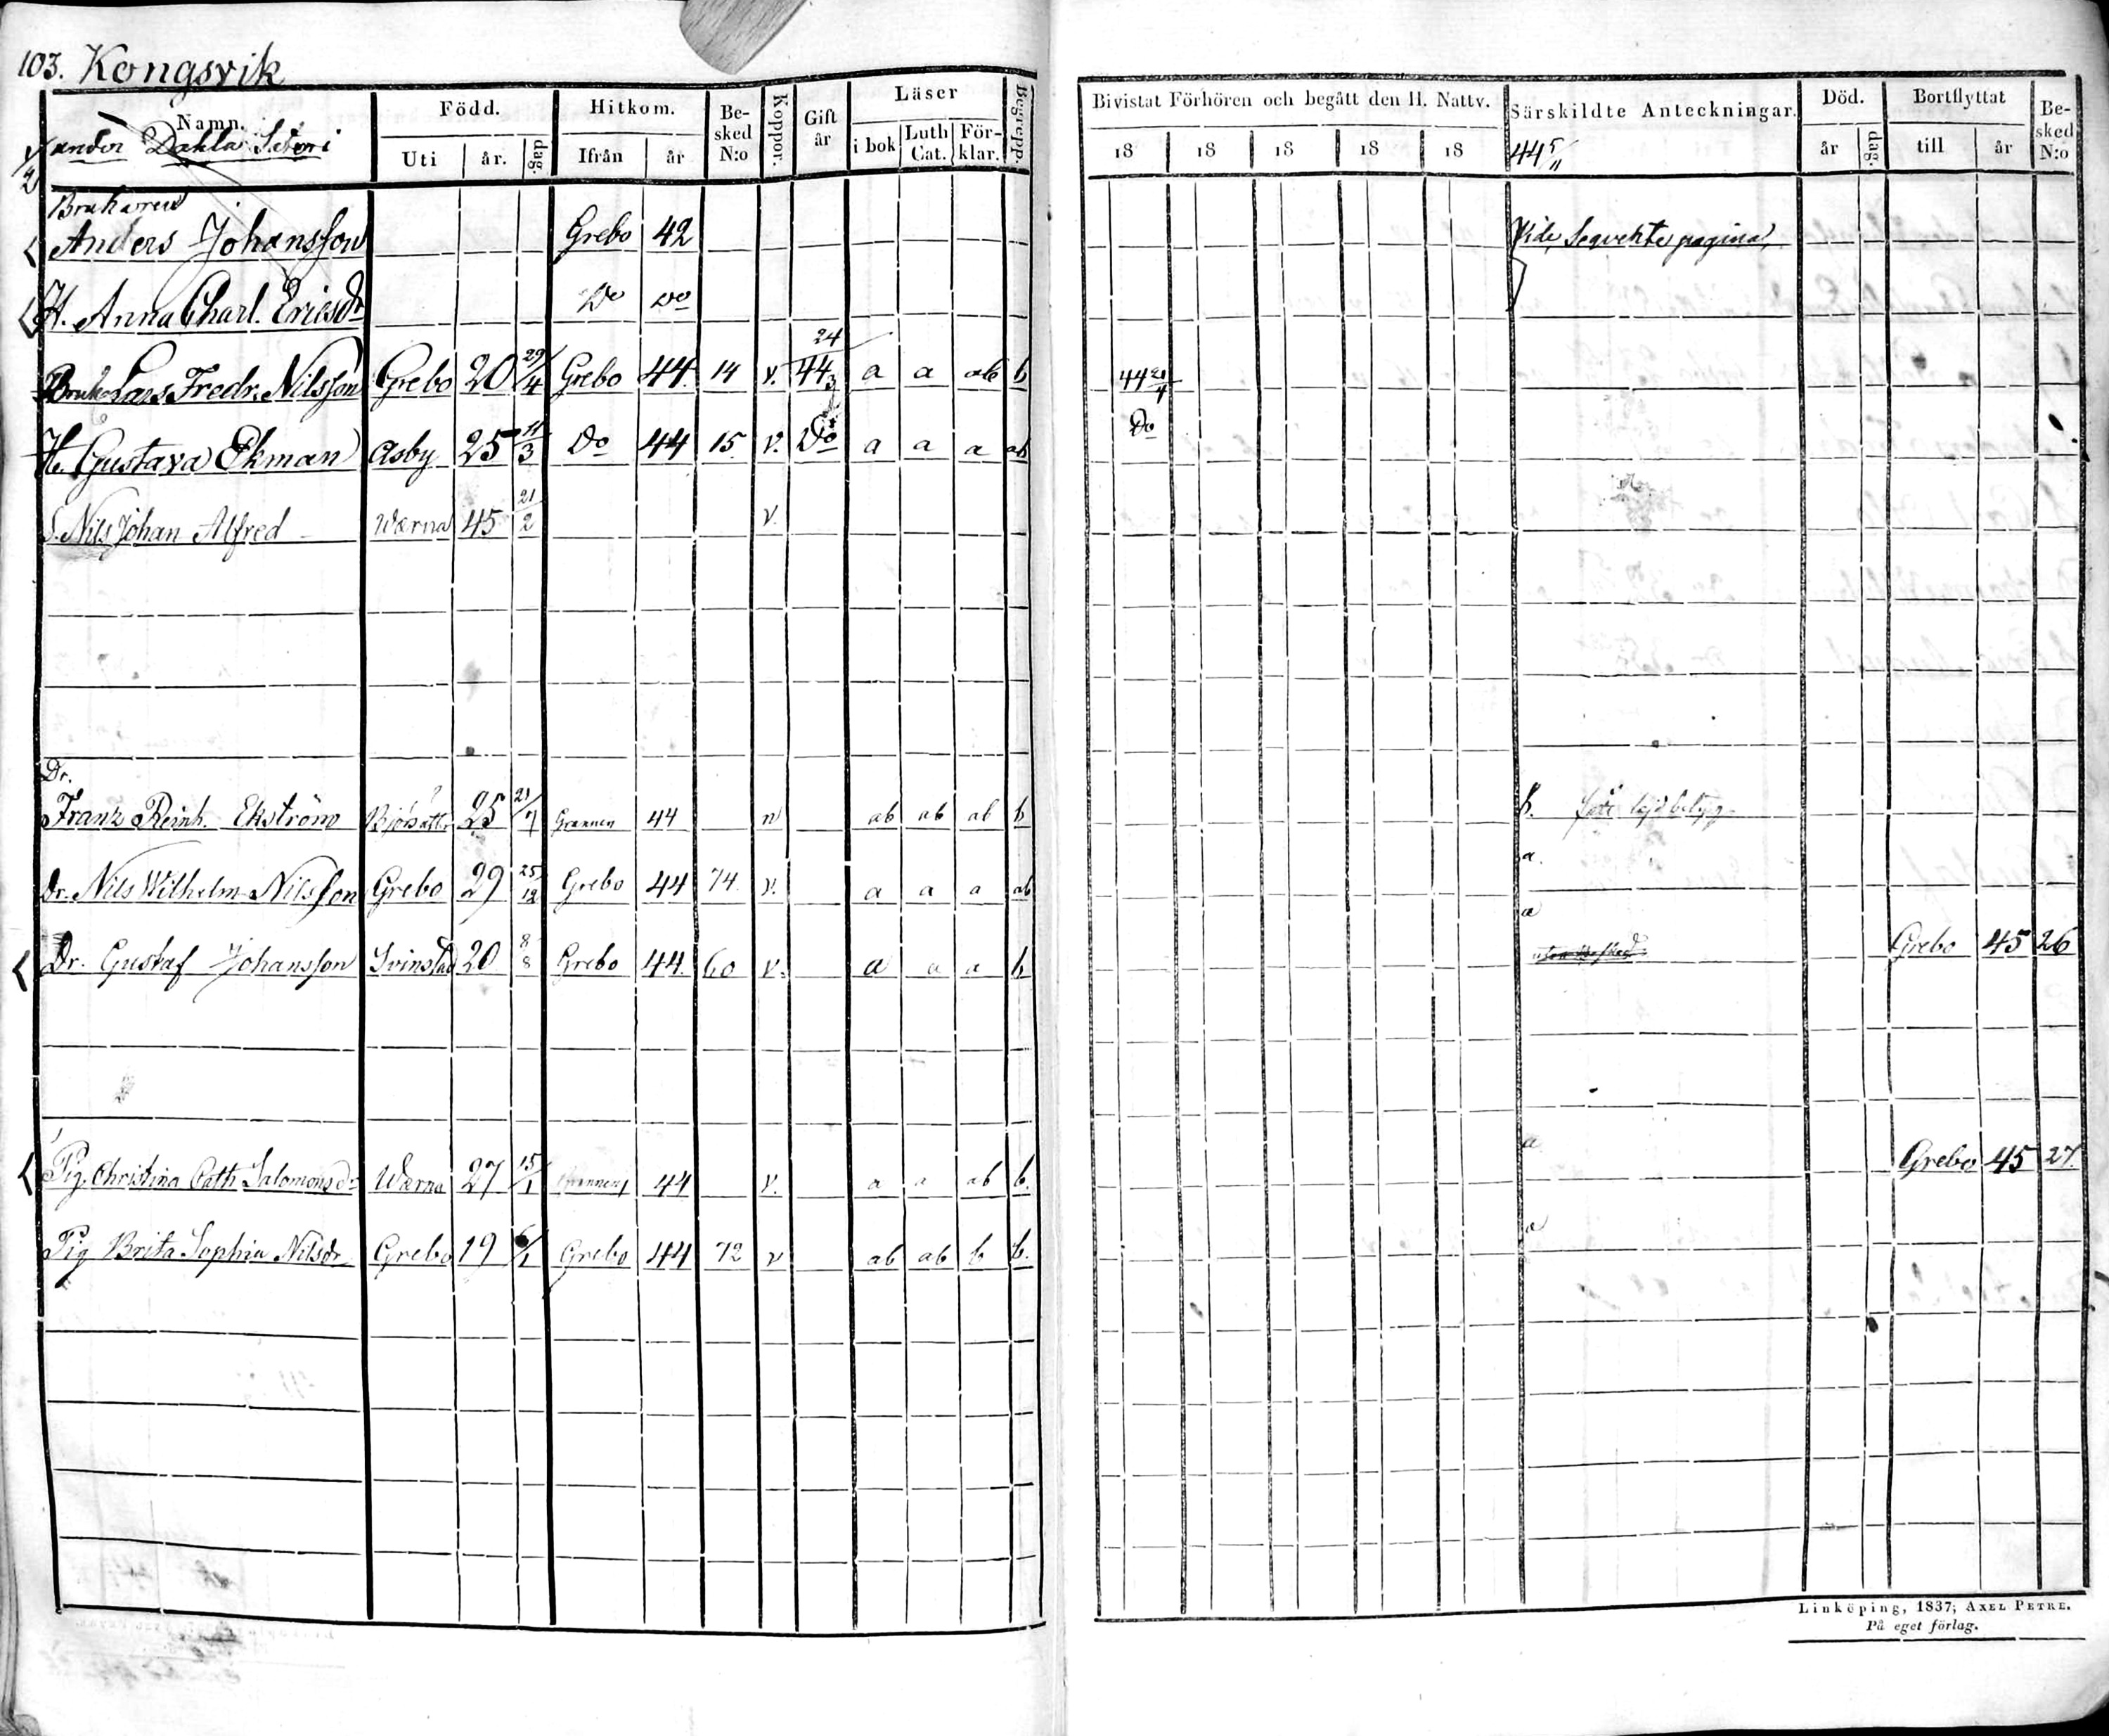 103. Kongsvik
Namn. Född. Hitkom. Be-sked N:o Koppor. Gift år Läser Begrepp.
Uti år. dag. Ifrån år i bok Luth Cat. För-klar.
Bivistat Förhören och begått den H. Nattv. Särskildte Anteckningar. Död. Bortflyttat Be-sked N:o
18 18 18 18 18 44 5/11 år dag. till år
under Dahla Säteri
Brukaren
Anders Johansson Grebo 42 Vide Seqvente pagina
H. Anna Charl. Ericsdr Do Do
Bruk. Lars Fredr. Nilsson Grebo 20 29/4 Grebo 44 14 v. 24 44 3 a a ab b 44 21/4
H. Gustava Ekman Asby 25 11/3 Do 44 15 v. Do a a a ab Do
S. Nils Johan Alfred Wärna 45 21/2 v.
Dr.
Franz Reinh. Ekström 25 21/7 Grannen 44 n ab ab ab b b.
Dr. Nils Wilhelm Nilsson Grebo 29 25/12 Grebo 44 74 v. a a a ab a.
Dr. Gustaf Johansson Svinstad 20 8/8 Grebo 44 60 v. a a a b a Grebo 45 26
Pig. Christina Cath. Salomonsdr Wärna 27 15/1 Grannen 44 v. a a ab b. a Grebo 45 27.
Pig Brita Sophia Nilsdr Grebo 19 6/1 Grebo 44 72 v ab ab b b. a
Linköping, 1837; AXEL PETRE.
På eget förlag.